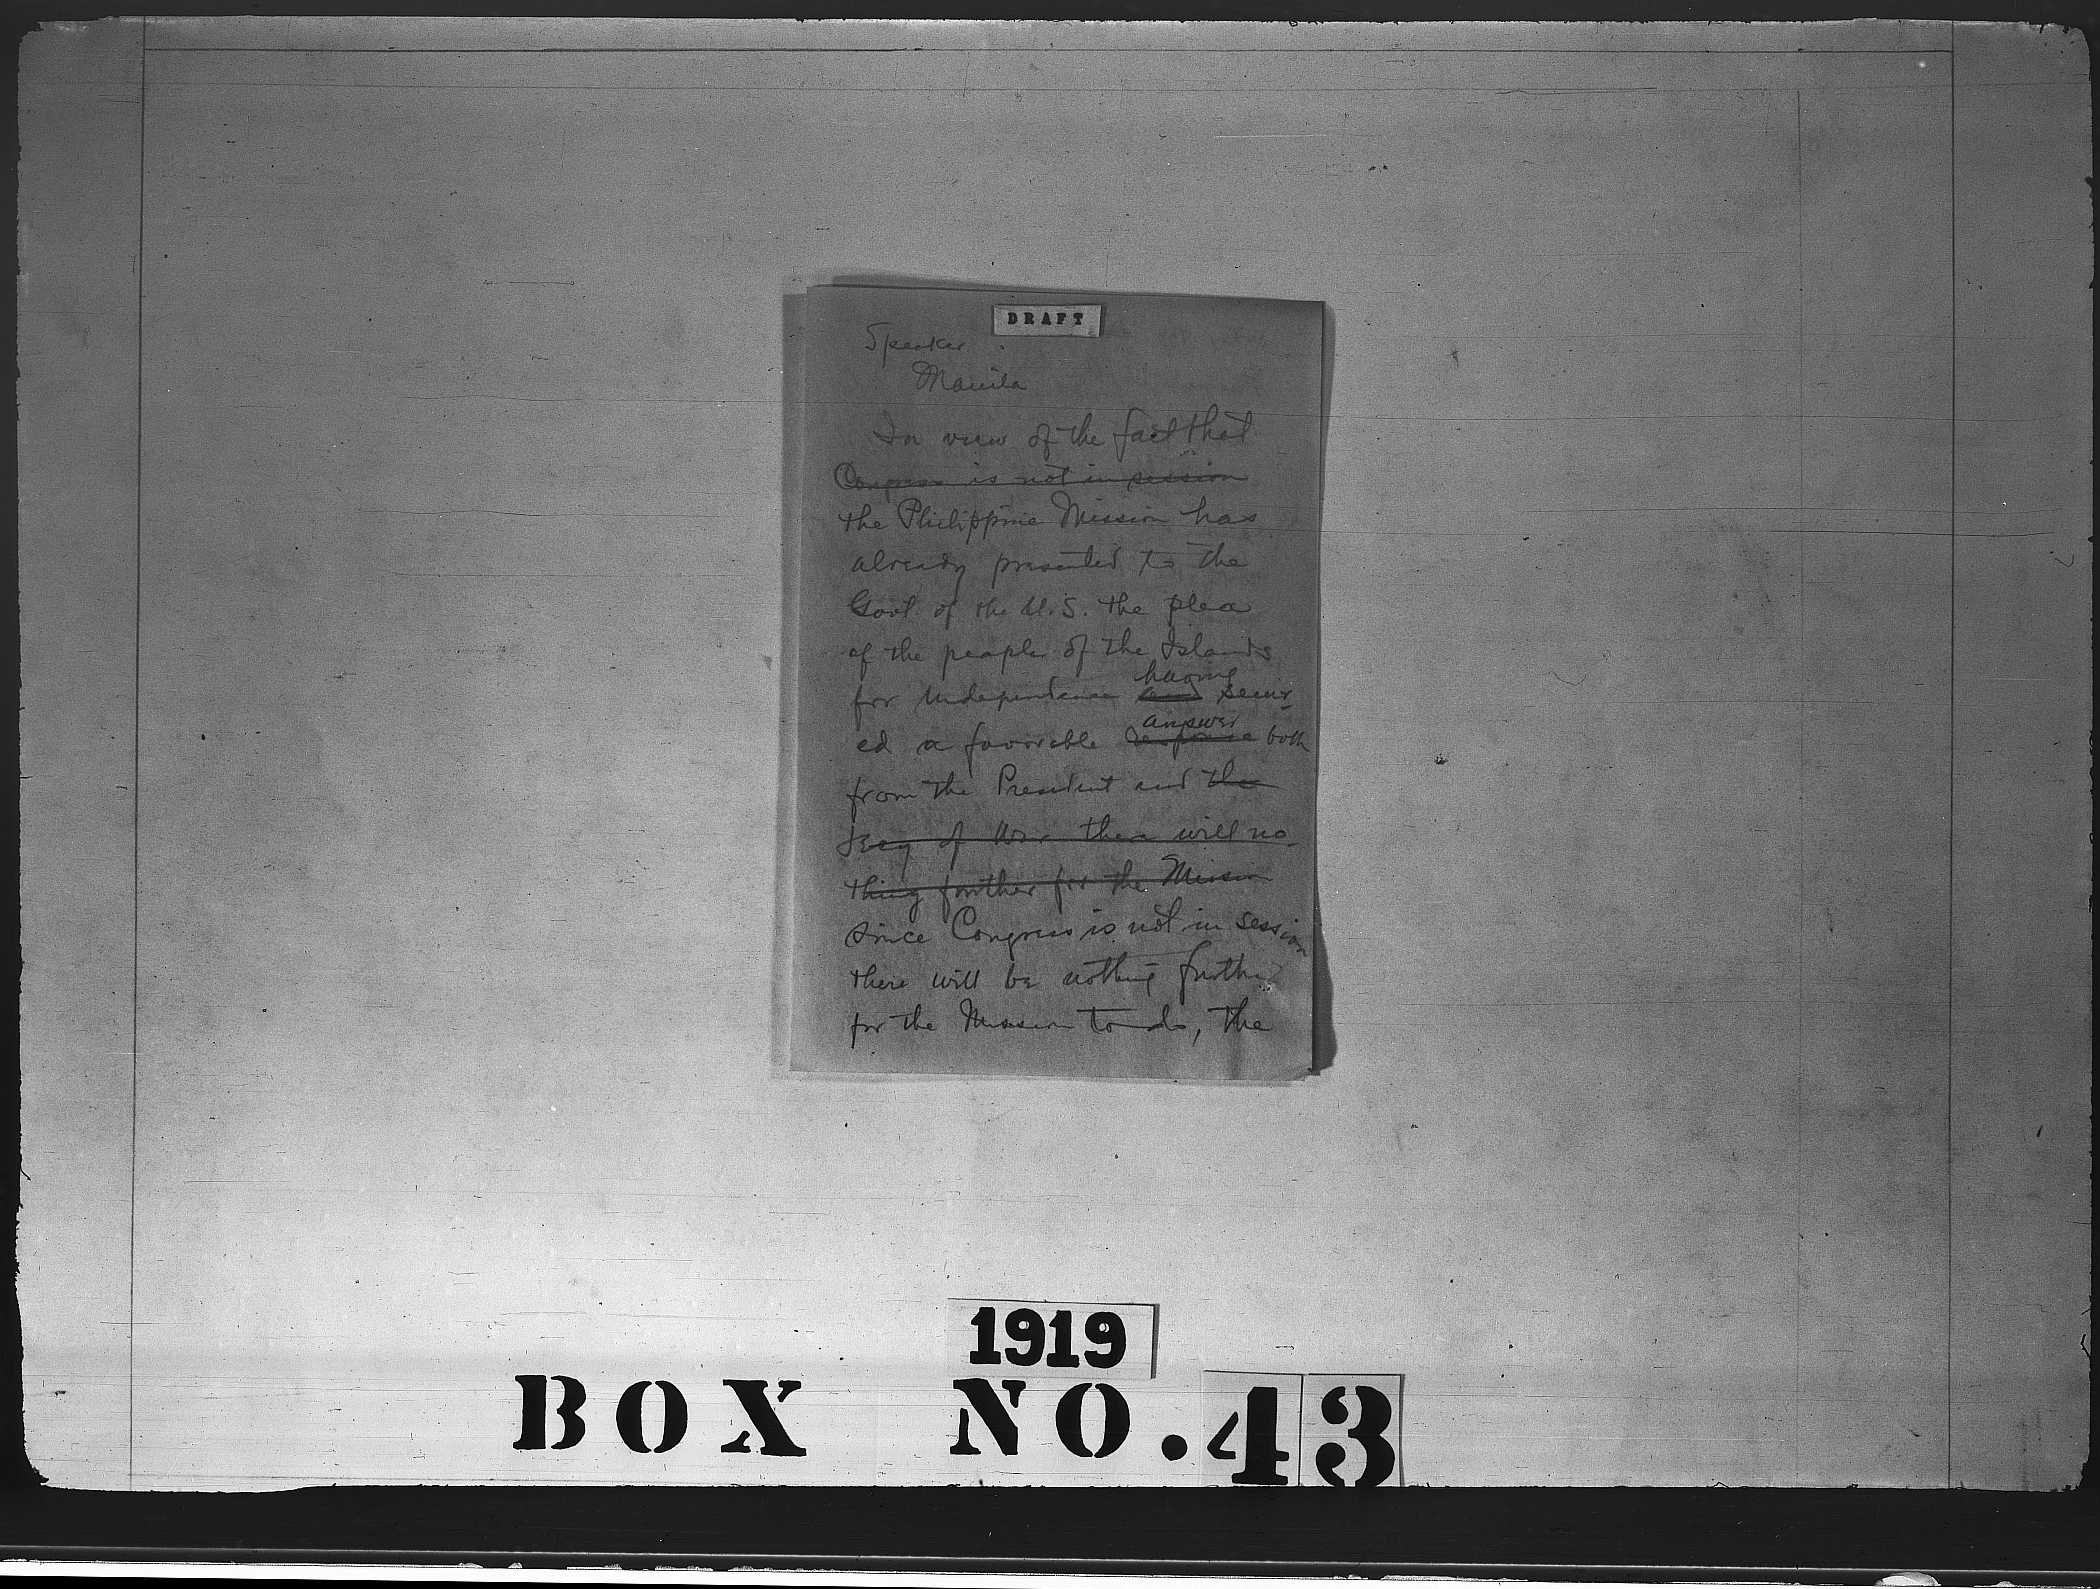 DRAFT
Speaker
Manila
In view of the fact that
Congress is not in session
the Philippine Mission has
already presented to the
Govt. of the U.S. the plea
of the people of the Islands
for independence and having secur-
ed a favorable response answer both
from the President and the
Secy of War there will no
thing further for the Mission
since Congress is not in session
there will be nothing further
for the Mission to do, the
1919
BOX NO. 43